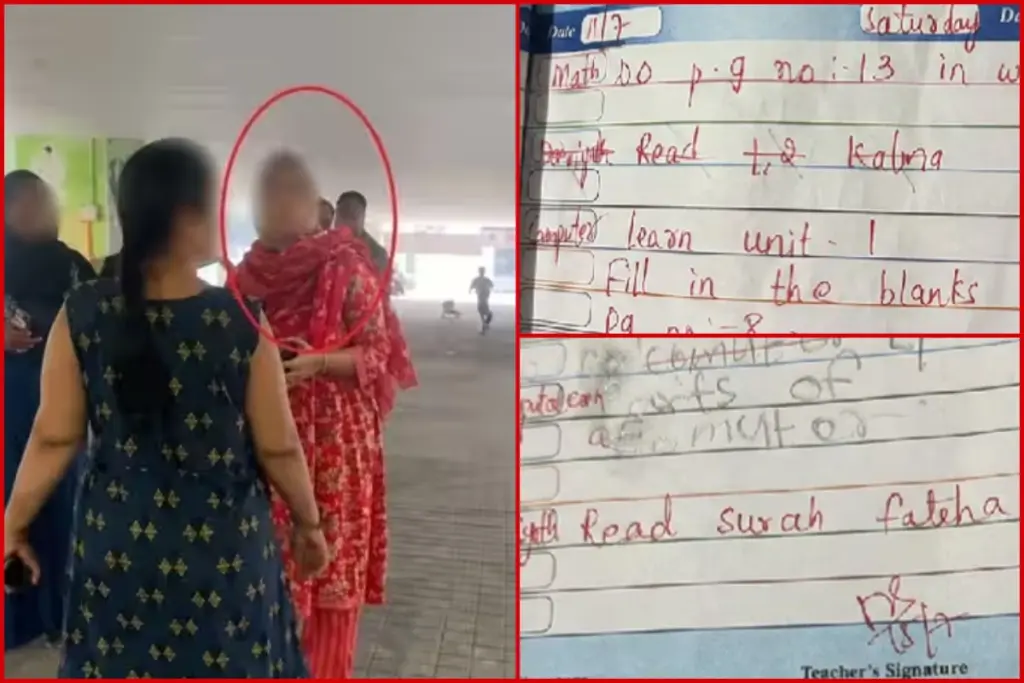 Date 11/7 Saturday
Math Do p.g no:-13 in
Read 1,2 Kalma
Computer learn unit - 1
Fill in the blanks
pg no:-8
parts of
Read surah fateha
Teacher's Signature